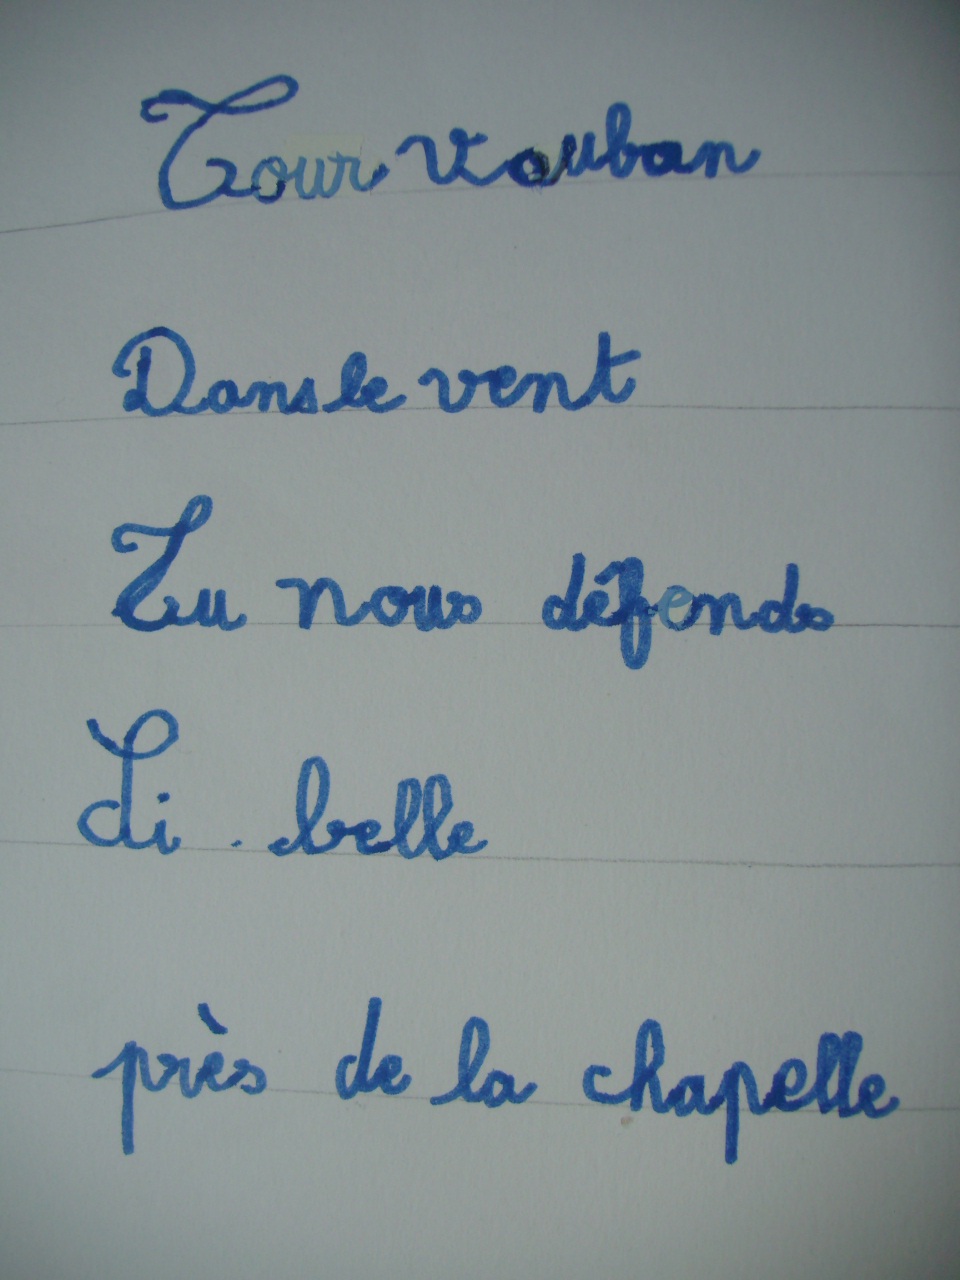 Tour Vauban
Dans le vent
Tu nous défends
Si belle
près de la chapelle